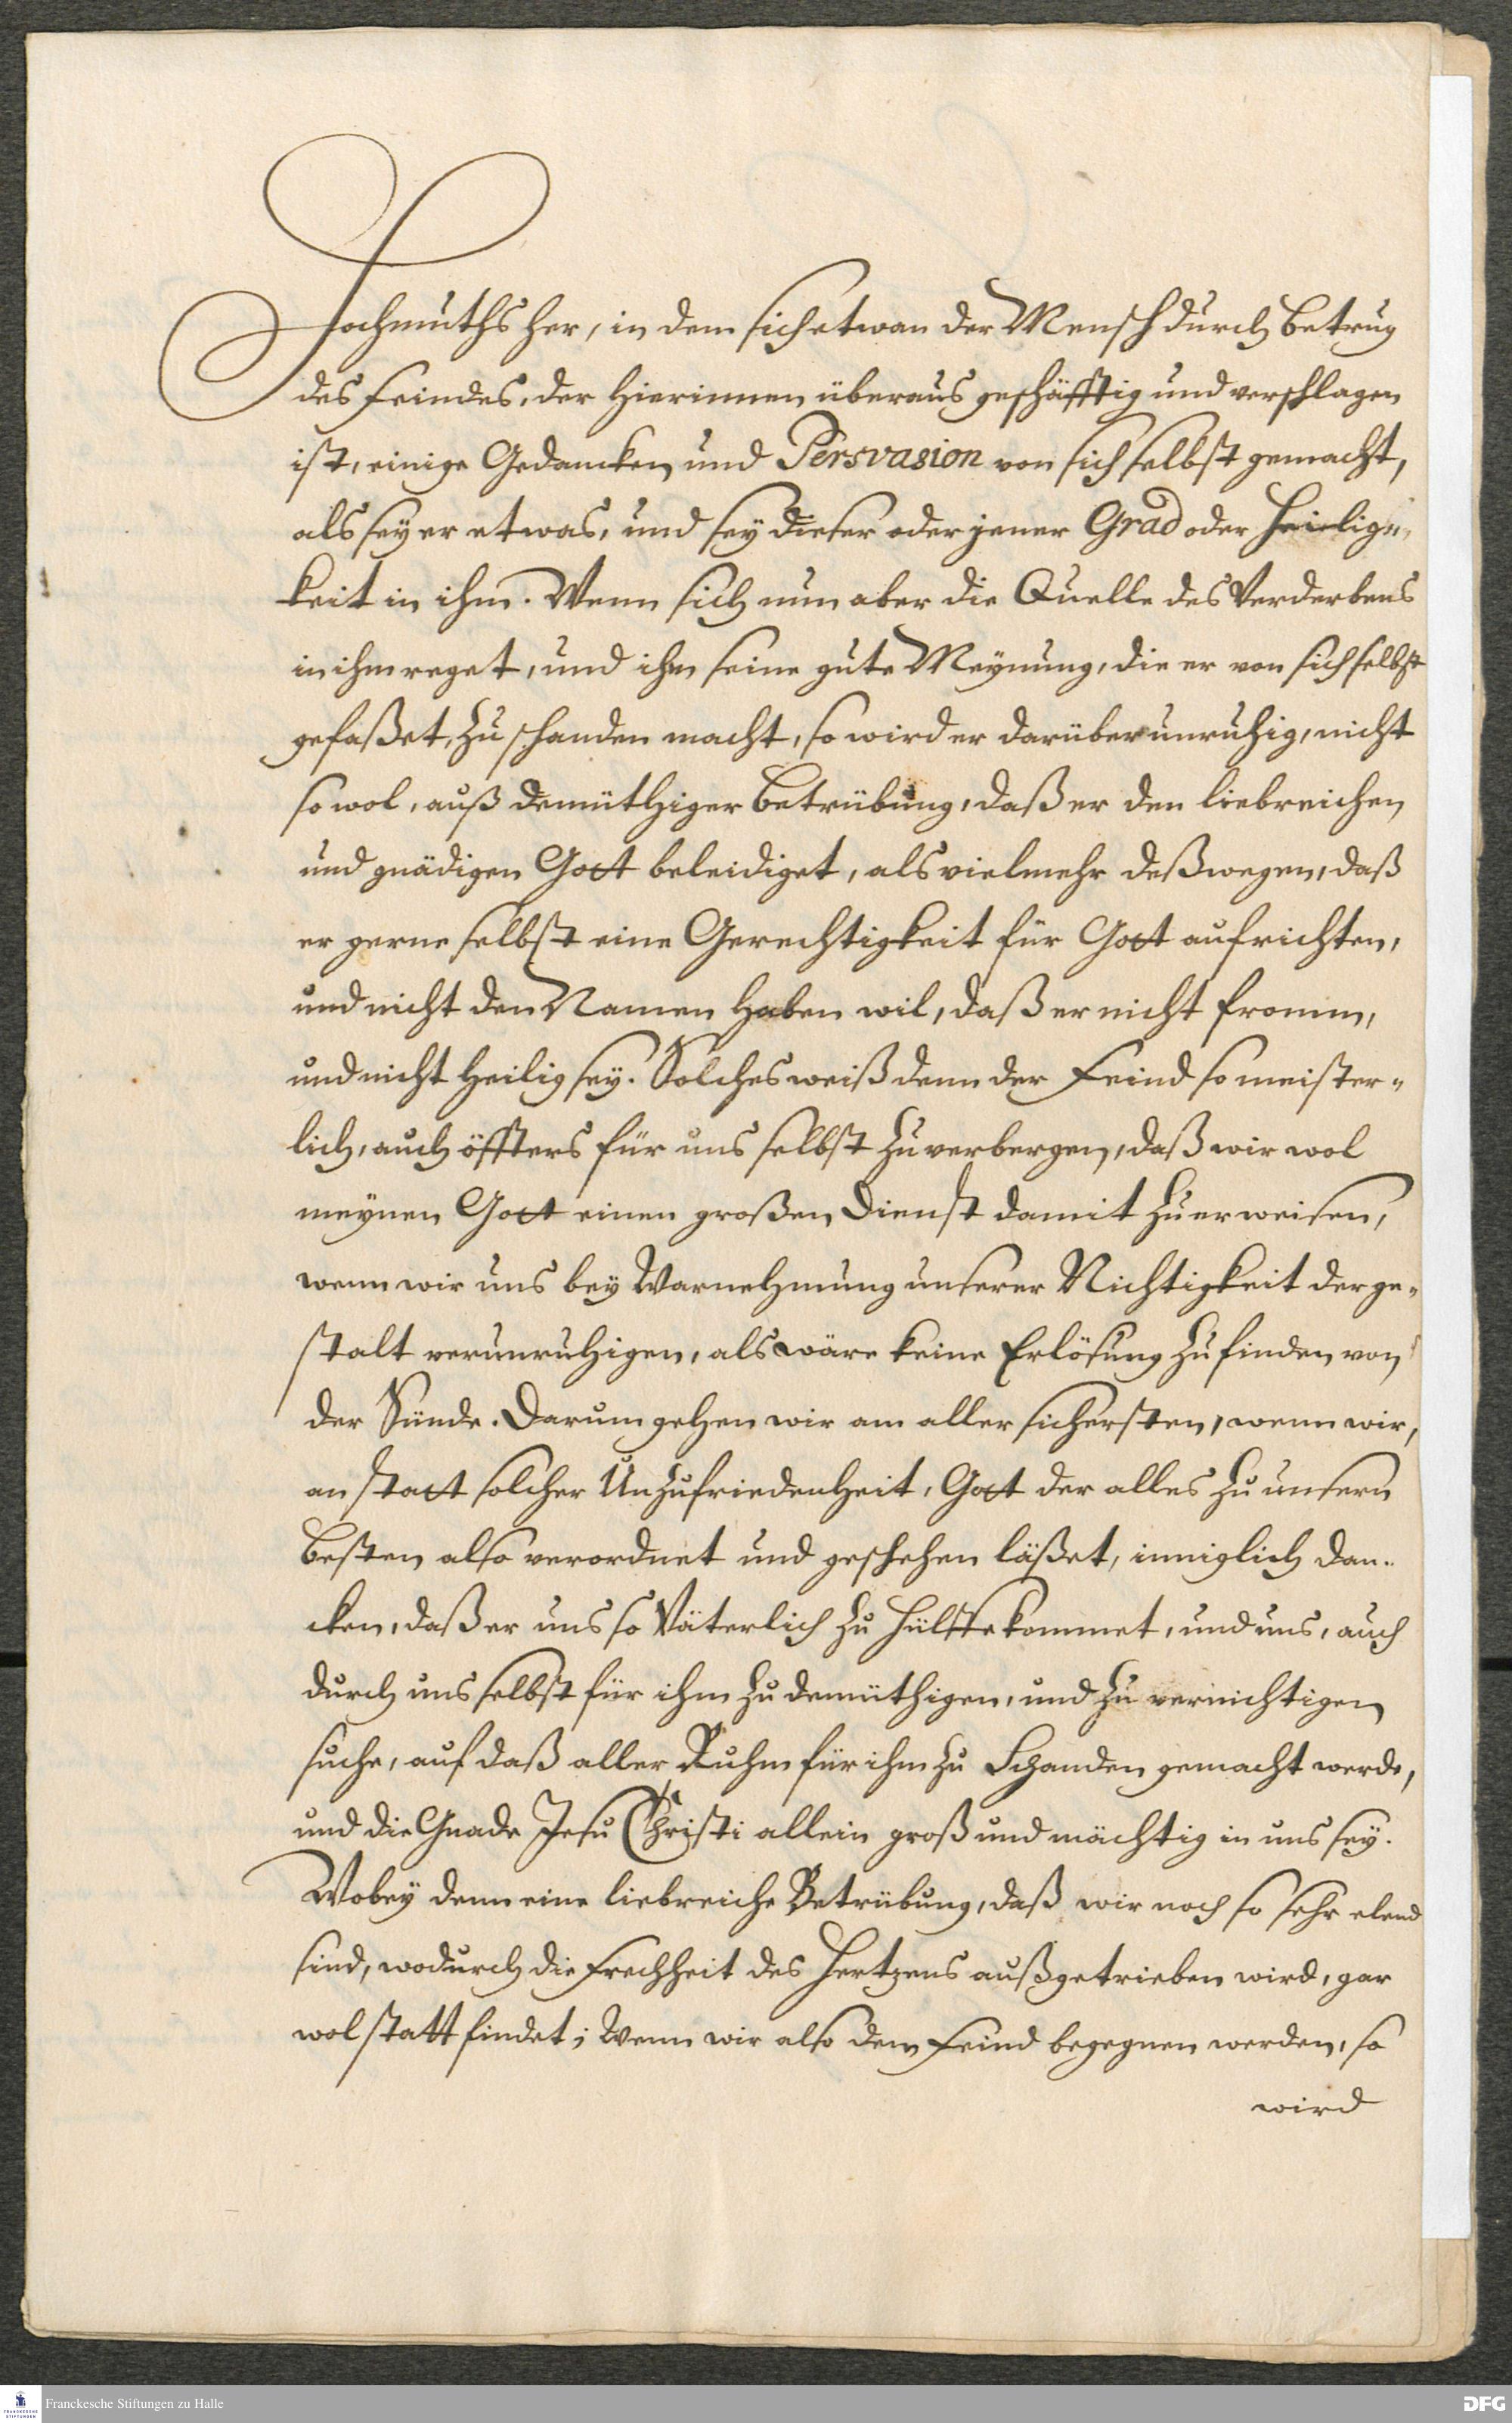 Hochmuths her, in dem sich etwan der Mensch durch betrug
des Feindes, der hierinnen überaus geschäfftig und verschlagen
ist, einige Gedancken und Persvasion von sich selbst gemacht,
als sey er etwas, und sey dieser oder jener Grad oder Heilig-
keit in ihm. Wenn sich nun aber die Quelle des Verderbens
in ihm reget, und ihm seine gute Meynung, die er von sich selbst
gefaßet, zu schanden macht, so wird er darüber unruhig, nicht
so wol, auß demüthiger betrübung, daß er den liebreichen
und gnädigen Gott beleidiget, als vielmehr deßwegen, daß
er gerne selbst eine Gerechtigkeit für Gott aufrichten,
und nicht den Namen haben wil, daß er nicht fromm,
und nicht heilig sey. Solches weiß denn der Feind so meister-
lich, auch öffters für uns selbst zu verbergen, daß wir wol
meynen Gott einen großen Dienst damit zu erweisen,
wenn wir uns bey Warnehmung unserer Nichtigkeit derge-
stalt verunruhigen, als wäre keine Erlösung zu finden von
der Sünde. Darum gehen wir am aller sichersten, wenn wir,
an statt solcher Unzufriedenheit, Gott der alles zu unsern
besten also verordnet und geschehen läßet, inniglich dan-
cken, daß er uns so Väterlich zu hülffe kommet, und uns, auch
durch uns selbst für ihm zu demüthigen, und zu vernichtigen
suche, auf daß aller Ruhm für ihm zu Schanden gemacht werde,
und die Gnade Jesu Christi allein groß und mächtig in uns sey.
Wobey denn eine liebreiche Betrübung, daß wir noch so sehr elend
sind, wodurch die Frechheit des Hertzens außgetrieben wird, gar
wol statt findet; Wenn wir also dem Feind begegnen werden, so
wird
Franckesche Stiftungen zu Halle
FRANCKESCHE STIFTUNGEN
DFG